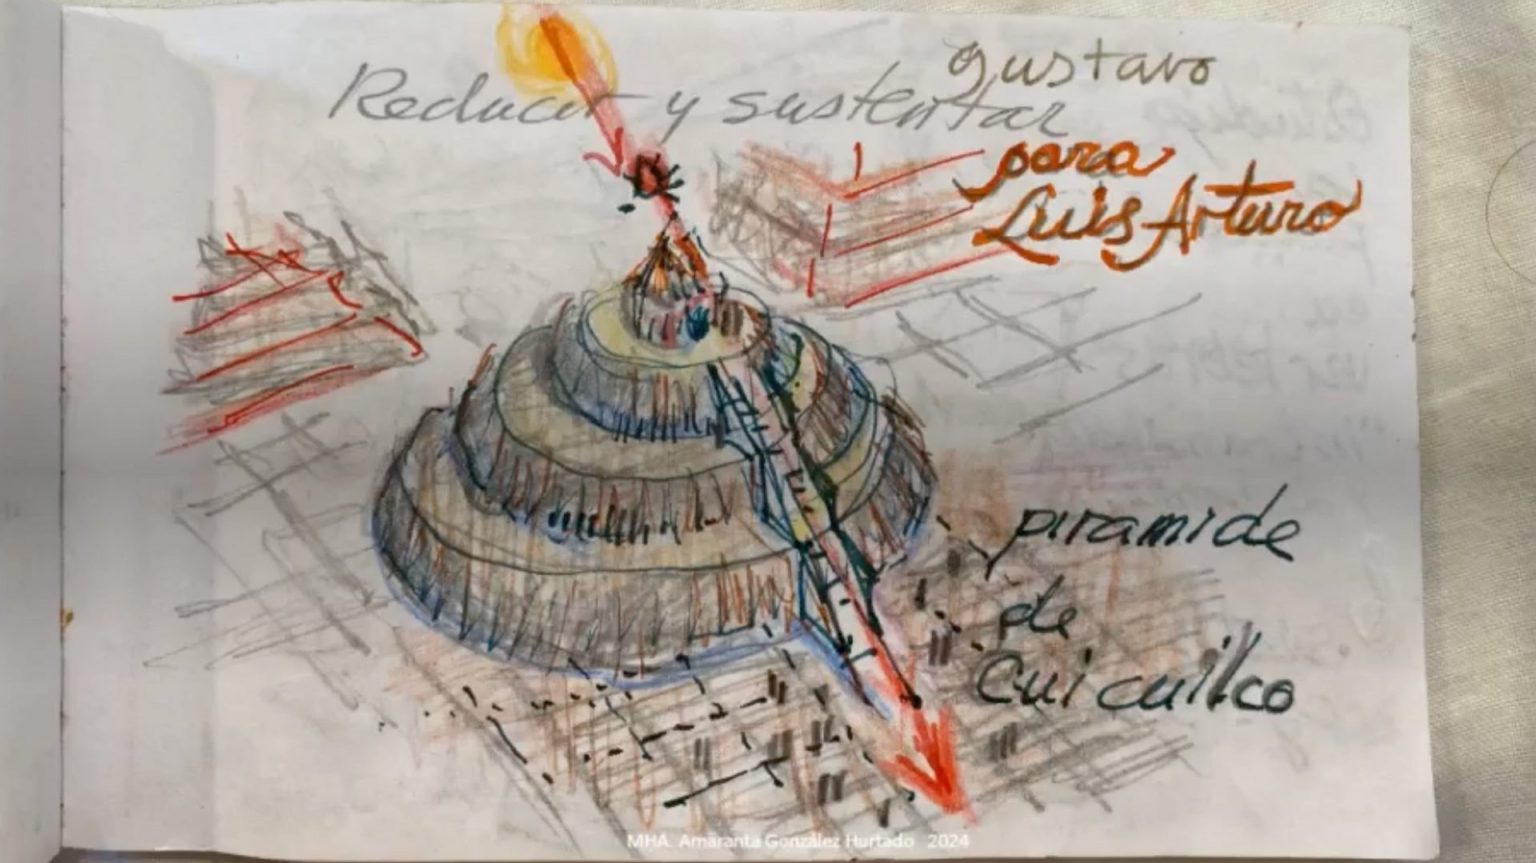 gustavo
Reducir y sustentar
para
Luis Arturo
piramide
de
Cuicuilco
MHA. Amaranta González Hurtado 2024